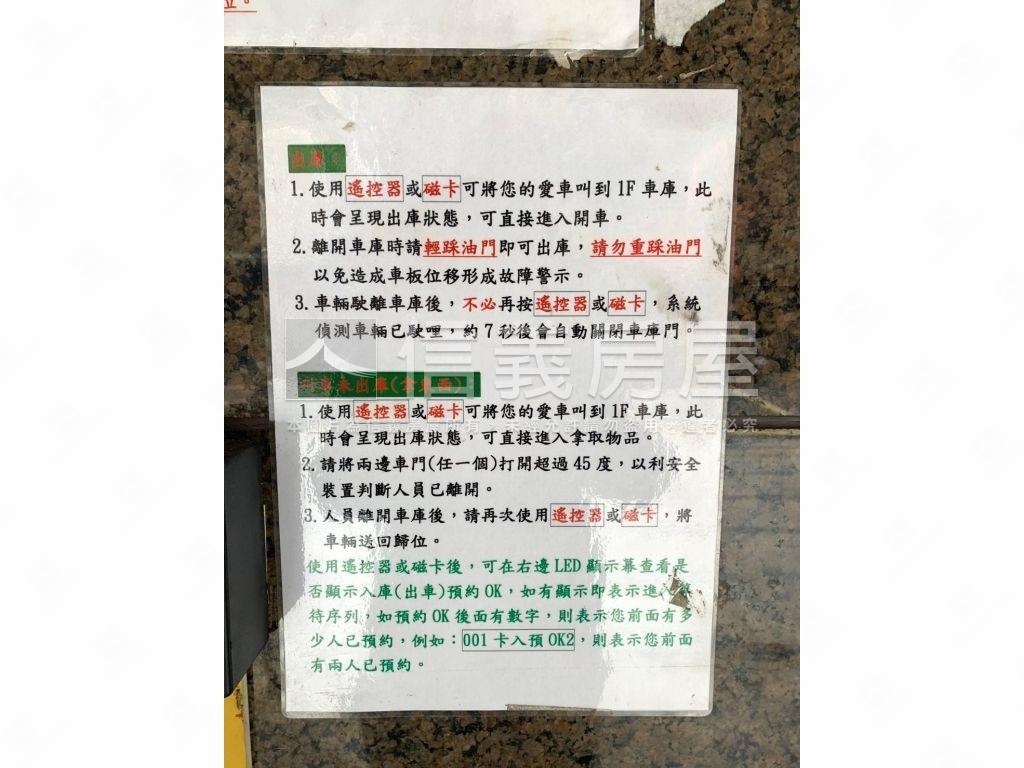 位。
出庫：
1.使用遙控器或磁卡可將您的愛車叫到1F車庫，此
時會呈現出庫狀態，可直接進入開車。
2.離開車庫時請輕踩油門即可出庫，請勿重踩油門
以免造成車板位移形成故障警示。
3.車輛駛離車庫後，不必再按遙控器或磁卡，系統
偵測車輛已駛哩，約7秒後會自動關閉車庫門。
信義房屋
車未出庫(
1.使用遙控器或磁卡可將您的愛車叫到1F車庫，此
時會呈現出庫狀態，可直接進入拿取物品。
2.請將兩邊車門(任一個)打開超過45度，以利安全
裝置判斷人員已離開。
3.人員離開車庫後，請再次使用遙控器或磁卡，將
車輛送回歸位。
使用遙控器或磁卡後，可在右邊LED顯示幕查看是
否顯示入庫(出車)預約OK，如有顯示即表示進入等
待序列，如預約OK後面有數字，則表示您前面有多
少人已預約，例如：001卡入預OK2，則表示您前面
有兩人已預約。